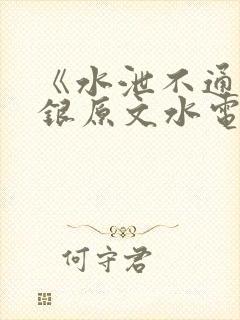 《水泄不通
銀原文水電
何守君